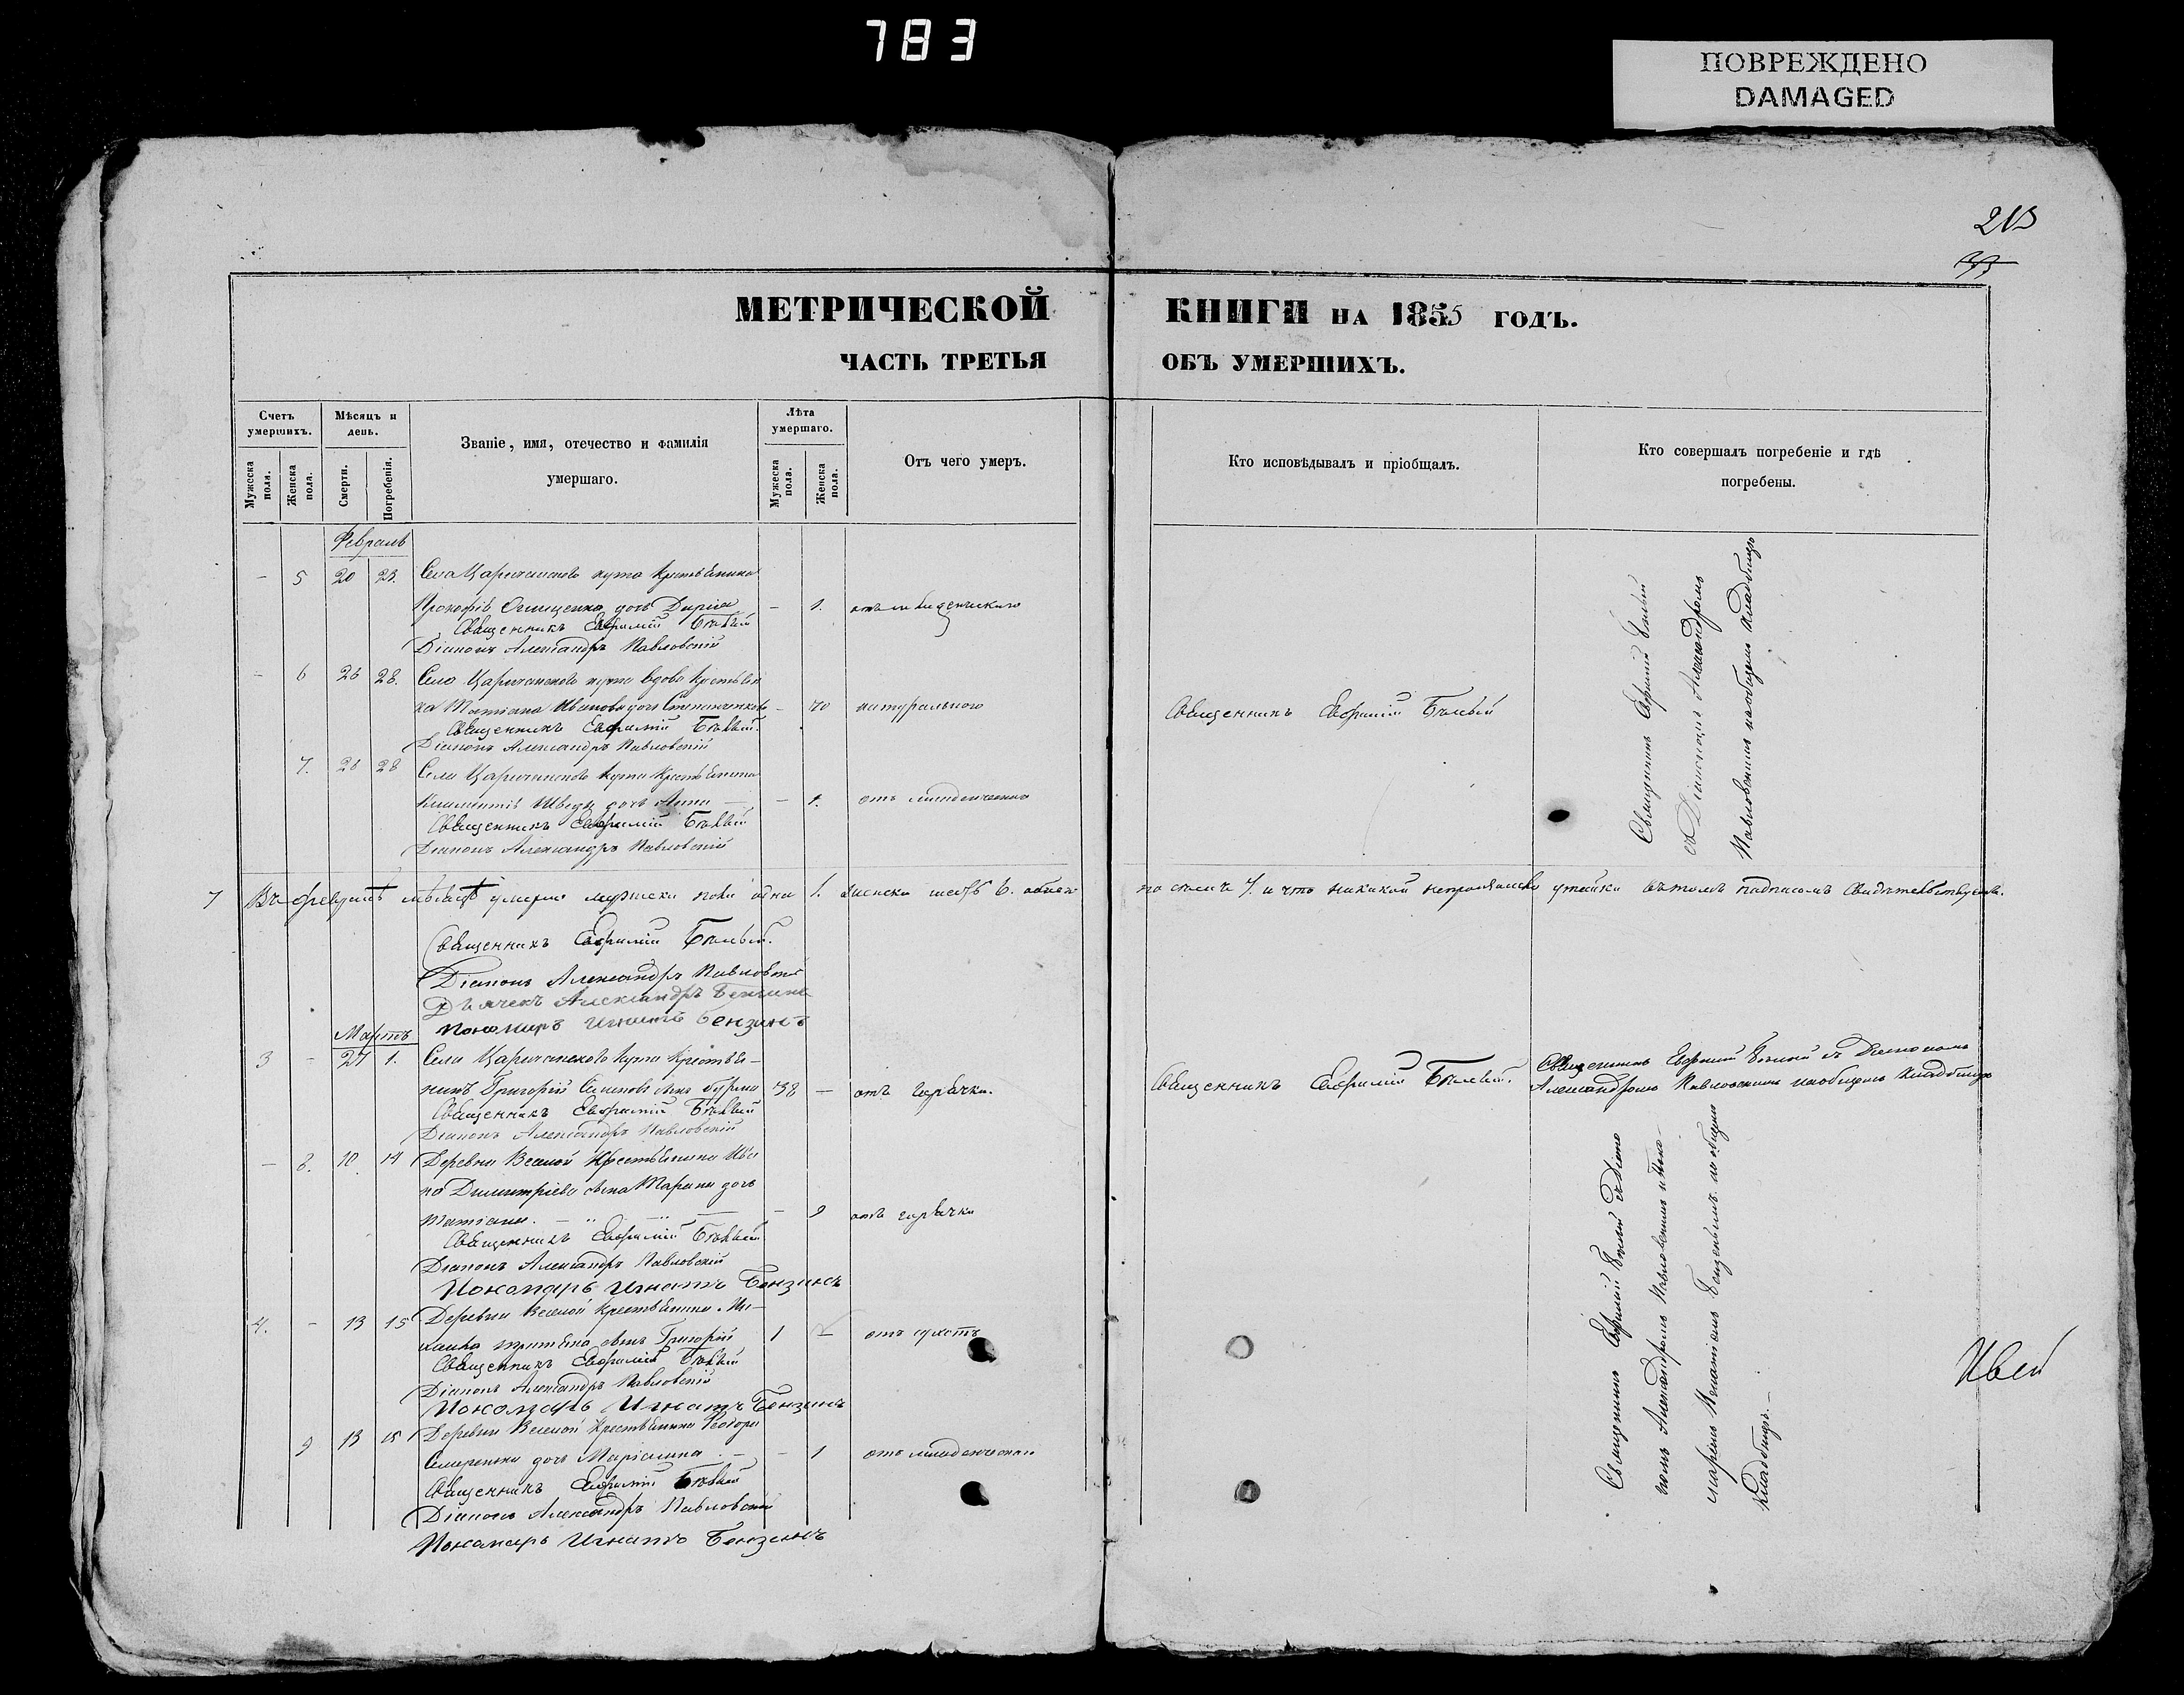 783
ПОВРЕЖДЕНО
DAMAGED
213
МЕТРИЧЕСКОЙ КНИГИ НА 1855 ГОДЪ.
ЧАСТЬ ТРЕТЬЯ ОБЪ УМЕРШИХЪ.
Счетъ умершихъ.
Мужеска пола.
Женска пола.
Мѣсяцъ и день.
Смерти.
Погребенія.
Званіе, имя, отечество и фамилія
умершаго.
Лѣта умершаго.
Мужеска пола.
Женска пола.
Отъ чего умеръ.
Кто исповѣдывалъ и пріобщалъ.
Кто совершалъ погребеніе и гдѣ
погребены.
Февраль
- 5 20 23. Села Царичанскаго кута крестьянина
Прокофія дочь Дарія - 1. отъ младенческаго
Священникъ Евфимій Бѣлый
Діаконъ Александръ Павловскій
- 6 26 28. Села Царичанскаго кута вдова крестьян
ка Татіана Иванова дочь - 70 натуральною
Священникъ Евфимій Бѣлый
Священникъ Евфимій Бѣлый.
Діаконъ Александръ Павловскій
7. 26 28 Села Царичанскаго кута крестьянина
Климентія Шведа дочь Анна - 1. отъ младенческаго
Священникъ Евфимій Бѣлый
Діаконъ Александръ Павловскій
Священникъ Евфимій Бѣлый
съ Діакономъ Александромъ
Павловскимъ на общемъ кладбищѣ
7 Въ февралѣ мѣсяцѣ умерло мужеска пола одна 1. женска шесть 6. обоего
по сколѣ 7. и что никакой утайки въ томъ подписомъ свидѣтельствуемъ.
Священникъ Евфимій Бѣлый.
Діаконъ Александръ Павловскій
Дьячекъ Александръ
Пономарь Игнатъ Бензинъ
Мартъ
3 - 27 1. Села Царичанскаго кута крестья-
нинъ Григорій сынъ 38 - отъ горячки.
Священникъ Евфимій Бѣлый.
Священникъ Евфимій Бѣлый съ Діакономъ
Александромъ Павловскимъ на общемъ кладбищѣ
Священникъ Евфимій Бѣлый
Діаконъ Александръ Павловскій
- 8. 10 14 Деревни Веселой крестьянина Ива
на Димитріева сына Тарана дочь
Татіана. - 9 отъ горячки
Священникъ Евфимій Бѣлый
Діаконъ Александръ Павловскій
Пономарь Игнатъ Бензинъ
4. - 13 15 Деревни Веселой крестьянина Ми-
хаила сынъ Григорій 1 -
Священникъ Евфимій Бѣлый
Діаконъ Александръ Павловскій
Пономарь Игнатъ Бензинъ
9 13 15 Деревни Веселой крестьянина Ѳеодора
дочь Маріанна - - 1 отъ младенческаго
Священникъ Евфимій Бѣлый
Діаконъ Александръ Павловскій
Пономарь Игнатъ Бензинъ
Священникъ Евфимій Бѣлый съ Діако
номъ Александромъ Павловскимъ и Поно-
маремъ Игнатіемъ Бензинымъ на общемъ
кладбищѣ.